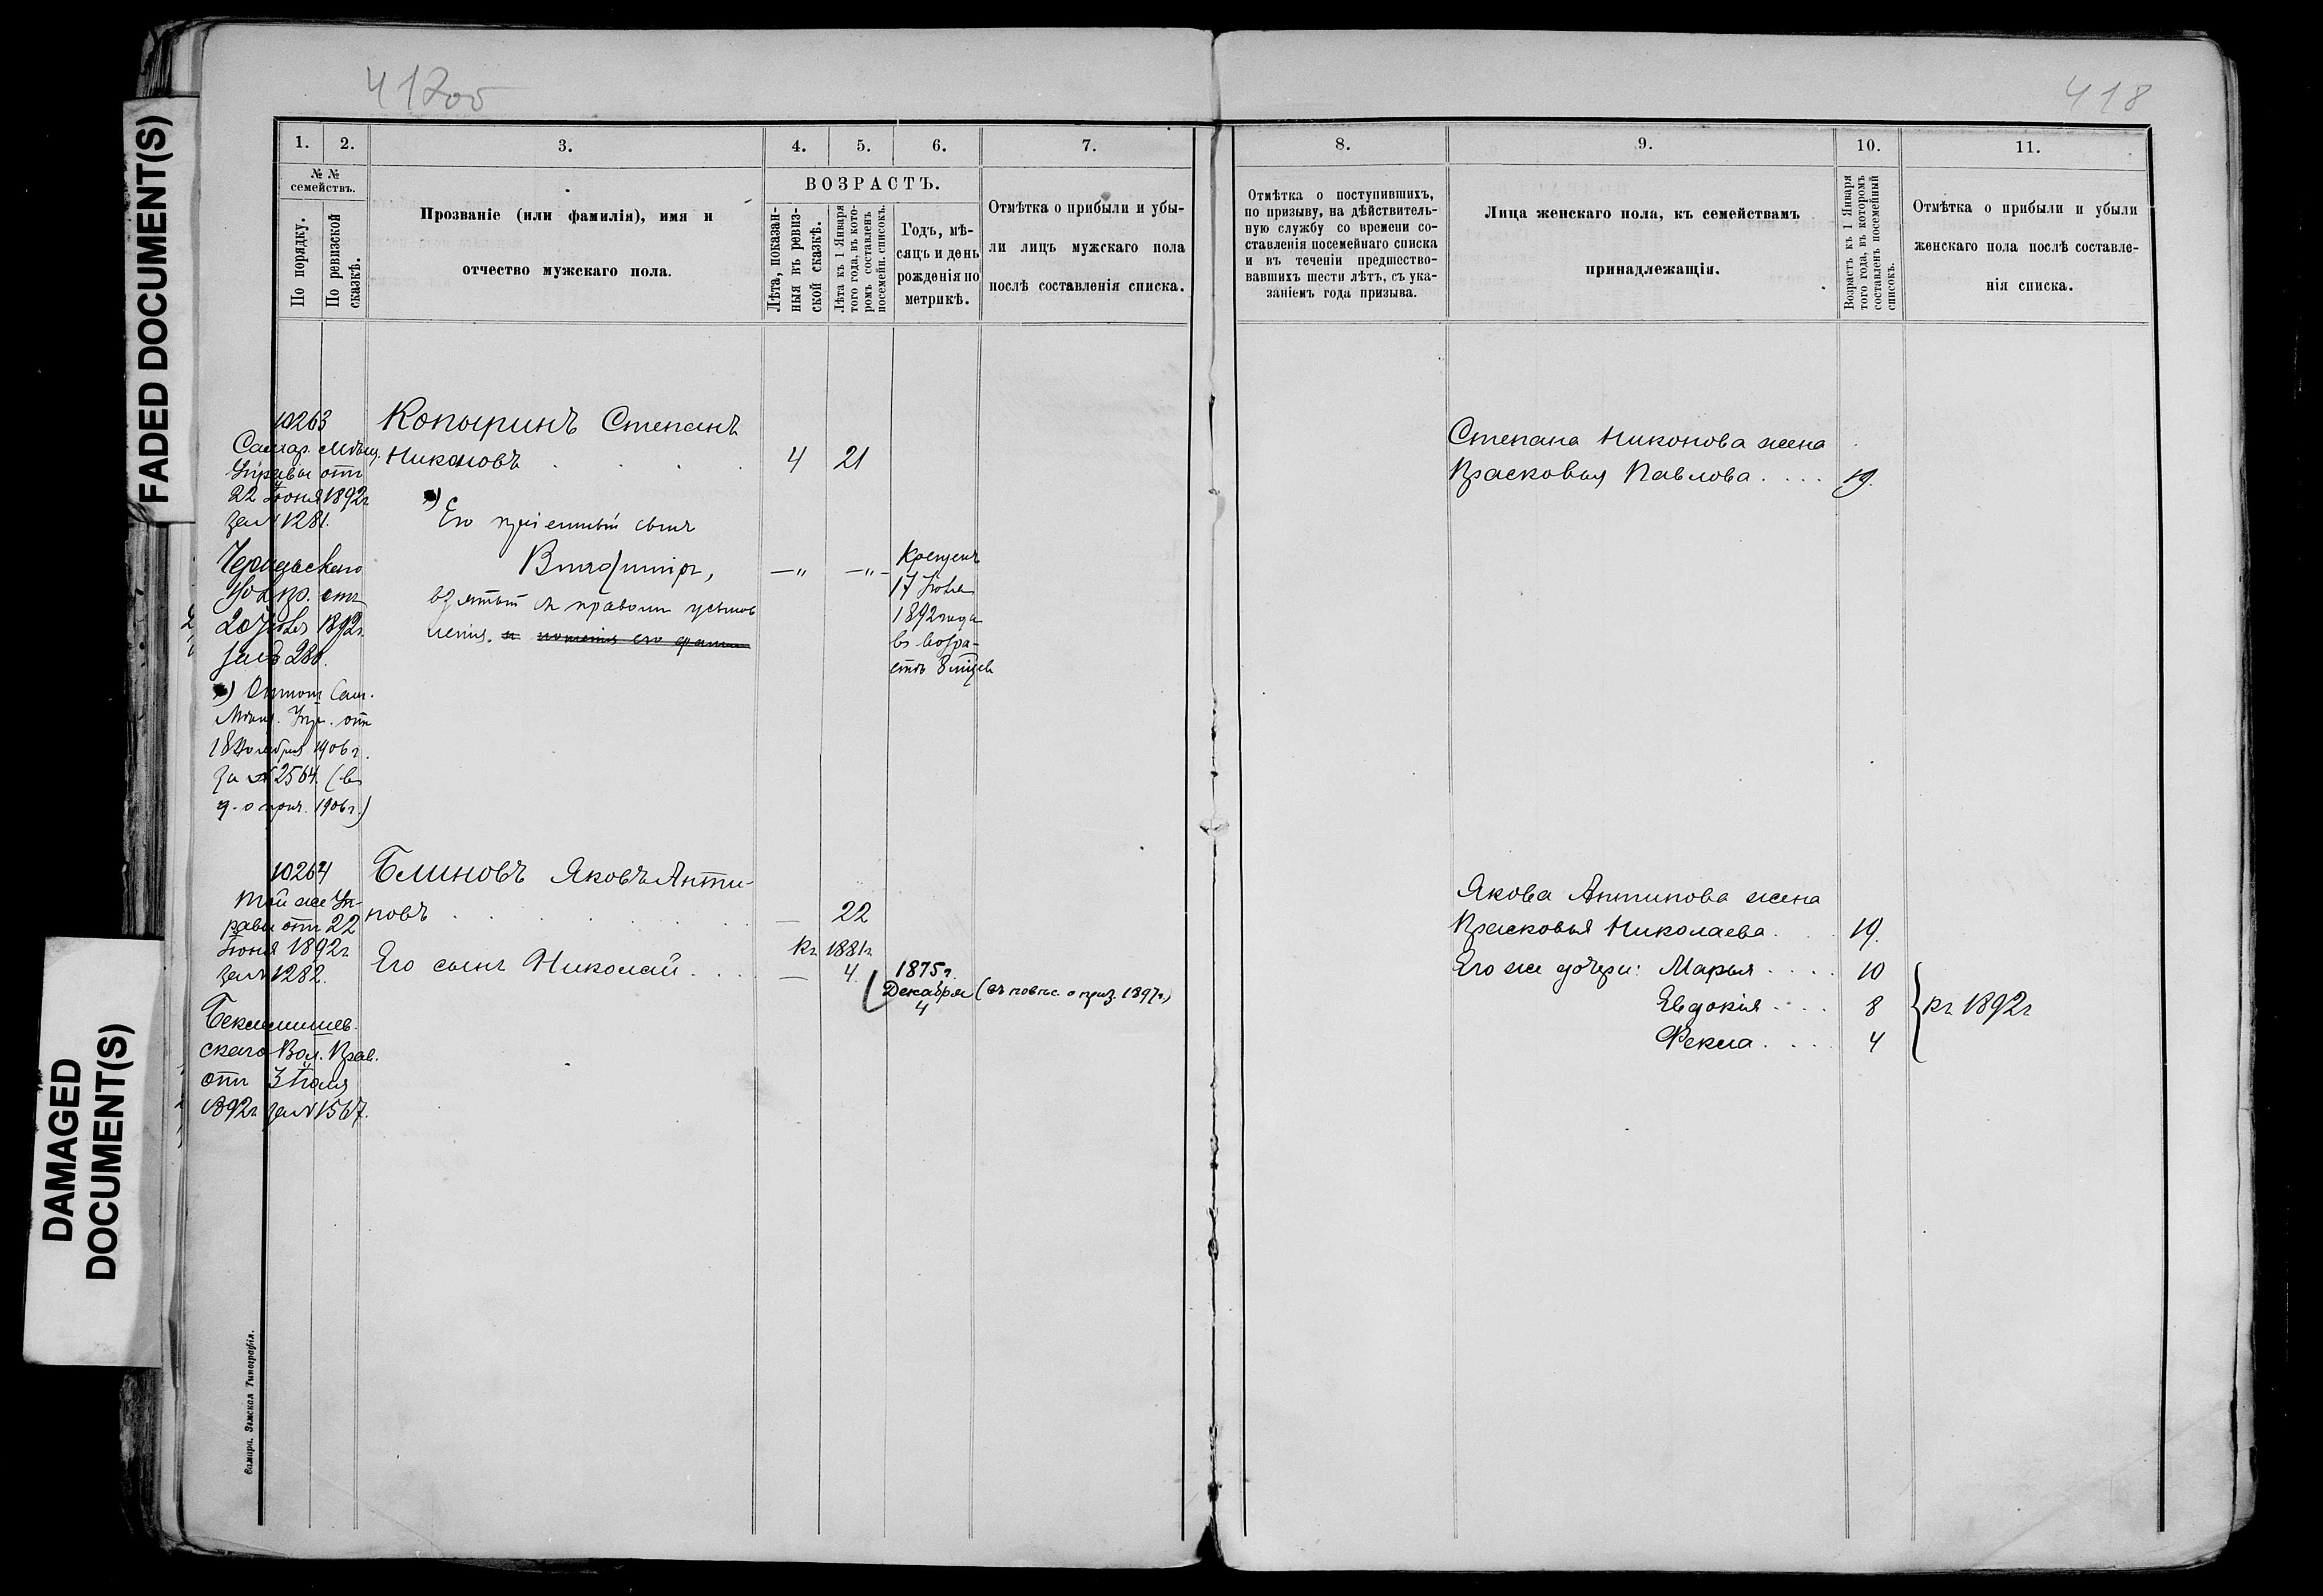 417об
418
FADED DOCUMENT(S)
DAMAGED
DOCUMENT(S)
1.
2.
3.
4.
5.
6.
7.
№ №
семействъ.
По порядку.
По ревизской
сказкѣ.
Прозваніе (или фамилія), имя и
отчество мужскаго пола.
ВОЗРАСТЪ.
Лѣта, показан-
ныя въ ревиз-
ской сказкѣ.
Лѣта къ 1 Января
того года, въ кото-
ромъ составленъ
посемейн. списокъ.
Годъ, мѣ-
сяцъ и день
рожденія по
метрикѣ.
Отмѣтка о прибыли и убы-
ли лицъ мужскаго пола
послѣ составленія списка.
8.
9.
10.
11.
Отмѣтка о поступившихъ,
по призыву, на дѣйствитель-
ную службу со времени со-
ставленія посемейнаго списка
и въ теченіи предшество-
вавшихъ шести лѣтъ, съ ука-
заніемъ года призыва.
Лица женскаго пола, къ семействамъ
принадлежащія.
Возрастъ къ 1 Января
того года, въ которомъ
составленъ посемейный
списокъ.
Отмѣтка о прибыли и убыли
женскаго пола послѣ составле-
нія списка.
10263
Самар. Мѣщ.
Управы отъ
22 Іюня 1892г
за № 1281.
отъ
1892г.
280.
Сам.
Мѣщ. Упр. отъ
18 Ноября 1906г.
за № 2564. (въ
1906г.)
Копыринъ Степанъ
Никоновъ . . . . 4 21
Его пріемный сынъ
Владиміръ, —„ —„—
взятый съ правомъ усынов
ленія.
Крещенъ
17 Іюля
1892 года
въ возра-
стѣ 8 мѣсяц
Степана Никонова жена
Прасковья Павлова . . . . 19.
10264
Той же Уп-
равы отъ 22
Іюня 1892г
за № 1282.
Бекшев-
скаго Вол. Прав.
отъ 3 Іюля
1892г за № 1567.
Блиновъ Яковъ Анти-
повъ . . . . . — 22
Къ 1881г
Его сынъ Николай . . . — 4.
1875г.
Декабря (въ повис. о приз. 1897г.)
4
Якова Антипова жена
Прасковья Николаева . . 19.
Его же дочери: Марья . . . . 10
Евдокія . . . 8
Къ 1892г
Фекла . . . . 4
Самара. Земская Типографія.